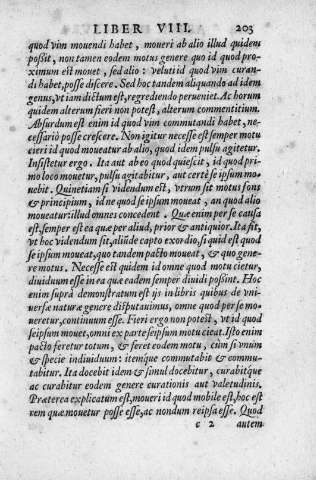 LIBER VIII. 203
quod vim mouendi habet, moueri ab alio illud quidem
possit, non tamen eodem motus genere quo id quod pro-
ximum est mouet, sed alio: veluti id quod vim curan-
di habet, posse discere. Sed hoc tandem aliquando ad idem
genus, vt iam dictum est, regrediendo perueniet. Ac horum
quidem alterum fieri non potest, alterum commentitium.
Absurdum est enim id quod vim commutandi habet, ne-
cessariò posse crescere. Non igitur necesse est semper motu
cieri id quod moueatur ab alio, quod idem pulsu agitetur.
Insistetur ergo. Ita aut ab eo quod quiescit, id quod pri-
mo loco mouetur, pulsu agitabitur, aut certè se ipsum mo-
uebit. Quinetiam si videndum est, vtrum sit motus fons
& principium, id ne quod se ipsum moueat, an quod alio
moueatur: illud omnes concedent. Quæ enim per se causa
est, semper est ea quæ per aliud, prior & antiquior. Ita fit,
vt hoc videndum sit, aliūde capto exordio, si quid est quod
se ipsum moueat, quo tandem pacto moueat, & quo gene-
re motus. Necesse est quidem id omne quod motu cietur,
diuiduum esse in ea quæ eadem semper diuidi possint. Hoc
enim suprà demonstratum est ijs in libris quibus de vni-
uersæ naturæ genere disputauimus, omne quod per se mo-
ueretur, continuum esse. Fieri ergo non potest, vt id quod
se ipsum mouet, omni ex parte se ipsum motu cieat. Isto enim
pacto feretur totum, & feret eodem motu, cùm si vnum
& specie indiuiduum: itemque commutabit & commu-
tabitur. Ita docebit idem & simul docebitur, curabitque
ac curabitur eodem genere curationis aut valetudinis.
Præterea explicatum est, moueri id quod mobile est, hoc est
rem quæ mouetur posse esse, ac nondum reipsa esse. Quod
c 2 autem